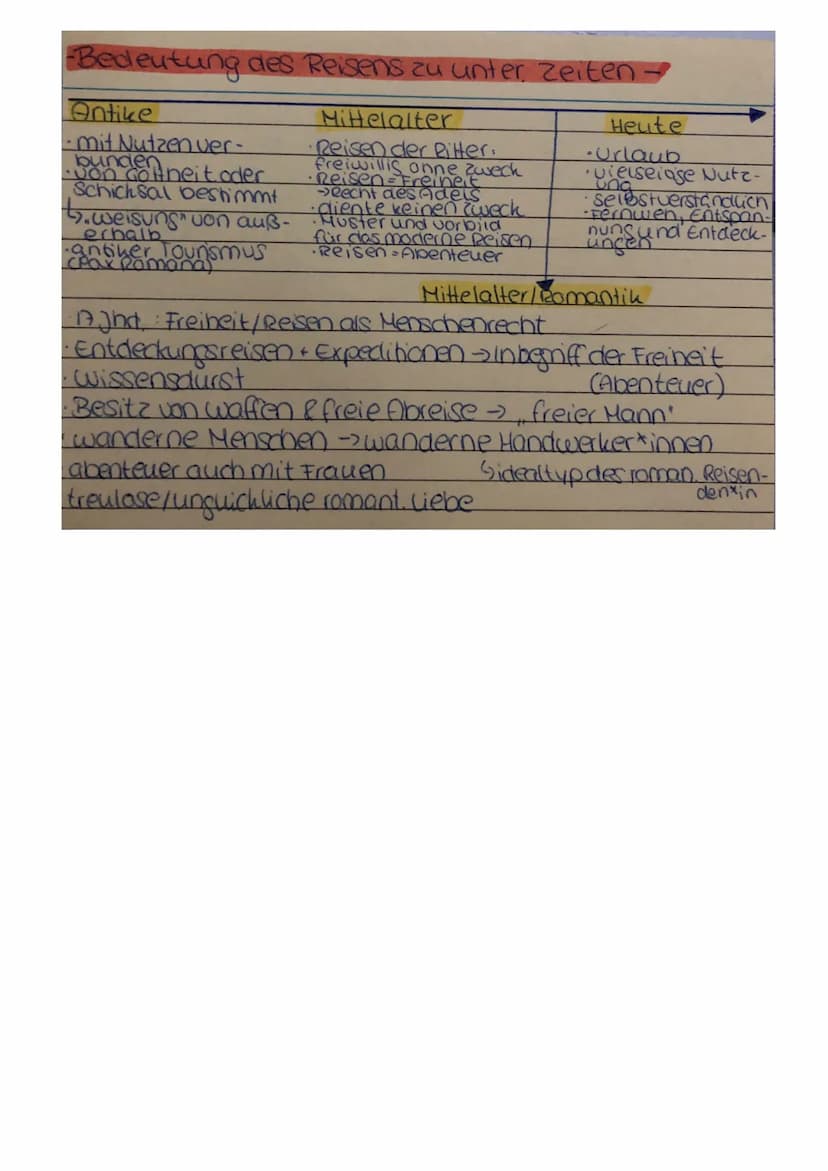 -Bedeutung des Reisens zu unter. Zeiten-
Antike
· mit Nutzen ver-
bunden
· von Gottheit oder
Schicksal bestimmt
↳ „Weisung" von auß-
erhalb
· antiker Tourismus
(Pax Romana)
Mittelalter
· Reisen der Ritter:
freiwillig ohne Zweck
· Reisen = Freiheit
→ Recht des Adels
· diente keinen Zweck
· Muster und Vorbild
für das moderne Reisen
· Reisen = Abenteuer
Heute
· Urlaub
· vielseitige Nutz-
ung
· selbstverständlich
· Fernweh, Entspan-
nung und Entdeck-
ungen
Mittelalter/Romantik
· 17 Jhd.: Freiheit/Reisen als Menschenrecht
· Entdeckungsreisen + Expeditionen → Inbegriff der Freiheit
· Wissensdurst (Abenteuer)
· Besitz von Waffen & freie Abreise → „freier Mann"
· wanderne Menschen → wanderne Handwerker*innen
abenteuer auch mit Frauen ↳ idealtyp des roman. Reisen-
den*in
treulose/unglückliche romant. Liebe